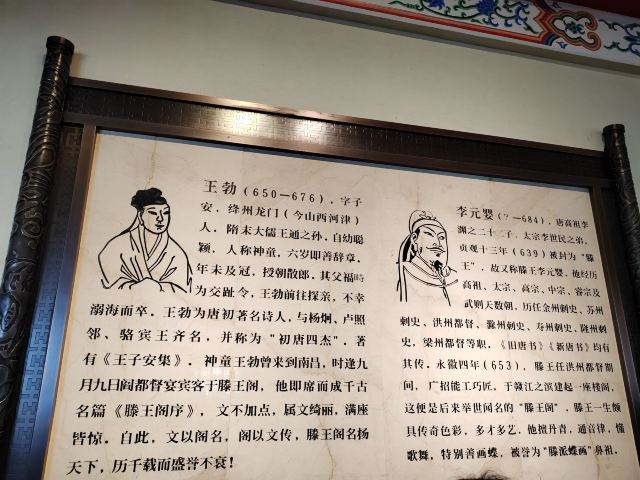 王勃(650—676)，字子
安，绛州龙门(今山西河津)
人，隋末大儒王通之孙，自幼聪
颖，人称神童，六岁即善辞章，
年未及冠，授朝散郎，其父福畤
为交趾令，王勃前往探亲，不幸
溺海而卒。王勃为唐初著名诗人，与杨炯、卢照
邻、骆宾王齐名，并称为"初唐四杰"。著
有《王子安集》。神童王勃曾来到南昌，时逢九
月九日阎都督宴宾客于滕王阁，他即席而成千古
名篇《滕王阁序》，文不加点，属文绮丽，满座
皆惊。自此，文以阁名，阁以文传，滕王阁名扬
天下，历千载而盛誉不衰！
李元婴(?—684)，唐高祖李
渊之二十二子，太宗李世民之弟，
贞观十三年(639)被封为"滕
王"，故又称滕王李元婴，他经历
高祖、太宗、高宗、中宗、睿宗及
武则天数朝，历任金州刺史、苏州
刺史、洪州都督、滁州刺史、寿州刺史、隆州刺
史，梁州都督等职，《旧唐书》《新唐书》均有
其传。永徽四年(653)，滕王任洪州都督期
间，广招能工巧匠，于赣江之滨建起一座楼阁，
这便是后来举世闻名的"滕王阁"。滕王一生颇
具传奇色彩，多才多艺，他擅丹青，通音律，懂
歌舞，特别善画蝶，被誉为"滕派蝶画"鼻祖。